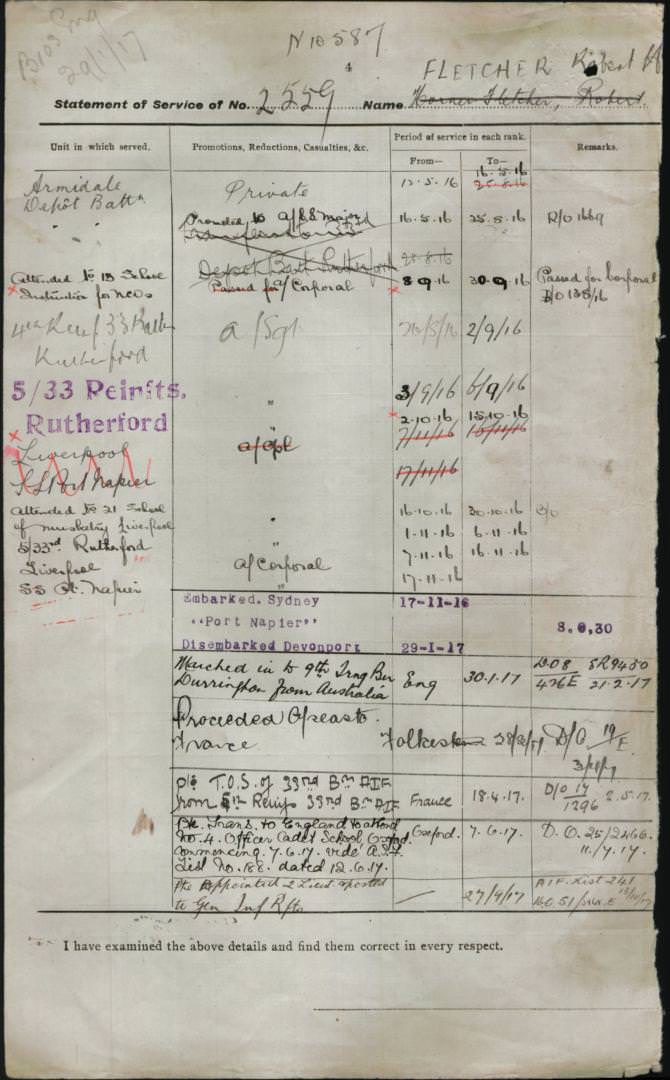 N 10587
B103 Eng
29/1/17
4
FLETCHER Robert H
Statement of Service of No. 2559 Name Horner Fletcher, Robert.
Unit in which served.
Promotions, Reductions, Casualties, &c.
Period of service in each rank.
From—
To—
Remarks.
Armidale
Depôt Battn
Private
12.5.16
16.5.16
25.8.16
" "
Promoted to a/
16.5.16
25.8.16
R/O 1669
Depot Batt Rutherford
25.8.16
Attended No 13 School
Instruction for NCOs
Passed for Corporal
8 9.16
30 9.16
Passed for Corporal
138/16
4th Reinf 33 Battn
Rutherford
a/Sgt
2/9/16
5/33 Reinfts.
Rutherford
"
3/9/16
6/9/16
2.10.16
15.10.16
Liverpool
SS Port Napier
a/Cpl
7/11/16
15/11/16
17/11/16
Attended No 21 School
of musketry Liverpool
"
16.10.16
30.10.16
1.11.16
6.11.16
5/33rd Rutherford
7.11.16
16.11.16
Liverpool
a/Corporal
SS Pt. Napier
"
17.11.16
Embarked. Sydney
17-11-16
"Port Napier"
8.0.30
Disembarked Devonport
29-I-17
Marched in to 9th Trng Bn
Durrington from Australia
Eng
30.1.17
D.O8
476E
SR9450
21.2.17
Proceeded Overseas to
France
D/O 19
E.
T.O.S. of 33rd Bn AIF
from 5th Reinfs 33rd Bn AIF
France
18.4.17.
D/o 17
1296
2.5.17.
Trans. to England to attend
No. 4. Officer Cadet School, Oxford
commencing 7.6.17. vide A.I.F.
List No. 188. dated 12.6.17.
Oxford.
7.6.17.
D.O. 25/2466.
11.7.17.
Appointed 2 Lieut & posted
to Gen Inf Rfts.
—
27/9/17
A.I.F. List 241
I have examined the above details and find them correct in every respect.